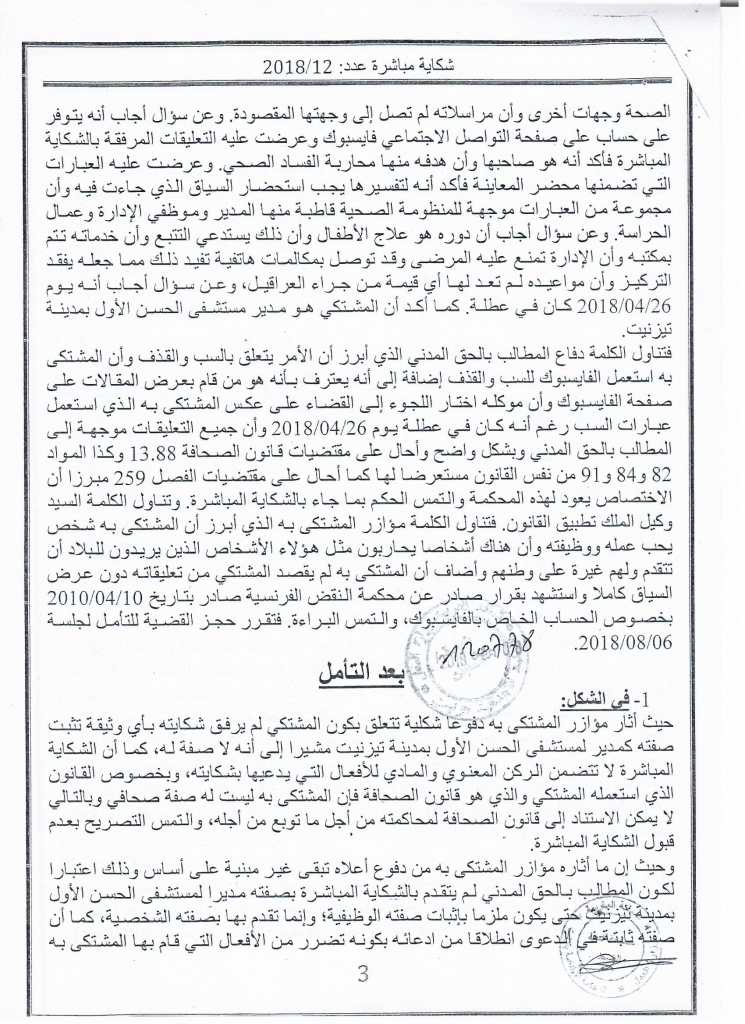 شكاية مباشرة عدد: 2018/12
الصحة وجهات أخرى وأن مراسلاته لم تصل إلى وجهتها المقصودة. وعن سؤال أجاب أنه يتوفر
على حساب على صفحة التواصل الاجتماعي فايسبوك وعرضت عليه التعليقات المرفقة بالشكاية
المباشرة فأكد أنه هو صاحبها وأن هدفه منها محاربة الفساد الصحي. وعرضت عليه العبارات
التي تضمنها محضر المعاينة فأكد أنه لتفسيرها يجب استحضار السياق الذي جاءت فيه وأن
مجموعة من العبارات موجهة للمنظومة الصحية قاطبة منها المدير وموظفي الإدارة وعمال
الحراسة. وعن سؤال أجاب أن دوره هو علاج الأطفال وأن ذلك يستدعي التتبع وأن خدماته تتم
بمكتبه وأن الإدارة تمنع عليه المرضى وقد توصل بمكالمات هاتفية تفيد ذلك مما جعله يفقد
التركيز وأن مواعيده لم تعد لها أي قيمة من جراء العراقيل، وعن سؤال أجاب أنه يوم
2018/04/26 كان في عطلة. كما أكد أن المشتكي هو مدير مستشفى الحسن الأول بمدينة
تيزنيت.
فتناول الكلمة دفاع المطالب بالحق المدني الذي أبرز أن الأمر يتعلق بالسب والقذف وأن المشتكى
به استعمل الفايسبوك للسب والقذف إضافة إلى أنه يعترف بأنه هو من قام بعرض المقالات على
صفحة الفايسبوك وأن موكله اختار اللجوء إلى القضاء على عكس المشتكى به الذي استعمل
عبارات السب رغم أنه كان في عطلة يوم 2018/04/26 وأن جميع التعليقات موجهة إلى
المطالب بالحق المدني وبشكل واضح وأحال على مقتضيات قانون الصحافة 13.88 وكذا المواد
82 و84 و91 من نفس القانون مستعرضا لها كما أحال على مقتضيات الفصل 259 مبرزا أن
الاختصاص يعود لهذه المحكمة والتمس الحكم بما جاء بالشكاية المباشرة. وتناول الكلمة السيد
وكيل الملك تطبيق القانون. فتناول الكلمة مؤازر المشتكى به الذي أبرز أن المشتكى به شخص
يحب عمله ووظيفته وأن هناك أشخاصا يحاربون مثل هؤلاء الأشخاص الذين يريدون للبلاد أن
تتقدم ولهم غيرة على وطنهم وأضاف أن المشتكى به لم يقصد المشتكي من تعليقاته دون عرض
السياق كاملا واستشهد بقرار صادر عن محكمة النقض الفرنسية صادر بتاريخ 2010/04/10
بخصوص الحساب الخاص بالفايسبوك، والتمس البراءة. فتقرر حجز القضية للتأمل لجلسة
2018/08/06.
بعد التأمل
1- في الشكل:
حيث أثار مؤازر المشتكى به دفوعا شكلية تتعلق بكون المشتكي لم يرفق شكايته بأي وثيقة تثبت
صفته كمدير لمستشفى الحسن الأول بمدينة تيزنيت مشيرا إلى أنه لا صفة له، كما أن الشكاية
المباشرة لا تتضمن الركن المعنوي والمادي للأفعال التي يدعيها بشكايته، وبخصوص القانون
الذي استعمله المشتكي والذي هو قانون الصحافة فإن المشتكى به ليست له صفة صحافي وبالتالي
لا يمكن الاستناد إلى قانون الصحافة لمحاكمته من أجل ما توبع من أجله، والتمس التصريح بعدم
قبول الشكاية المباشرة.
وحيث إن ما أثاره مؤازر المشتكى به من دفوع أعلاه تبقى غير مبنية على أساس وذلك اعتبارا
لكون المطالب بالحق المدني لم يتقدم بالشكاية المباشرة بصفته مديرا لمستشفى الحسن الأول
بمدينة تيزنيت حتى يكون ملزما بإثبات صفته الوظيفية؛ وإنما تقدم بها بصفته الشخصية، كما أن
صفته ثابتة في الدعوى انطلاقا من ادعائه بكونه تضرر من الأفعال التي قام بها المشتكى به
3